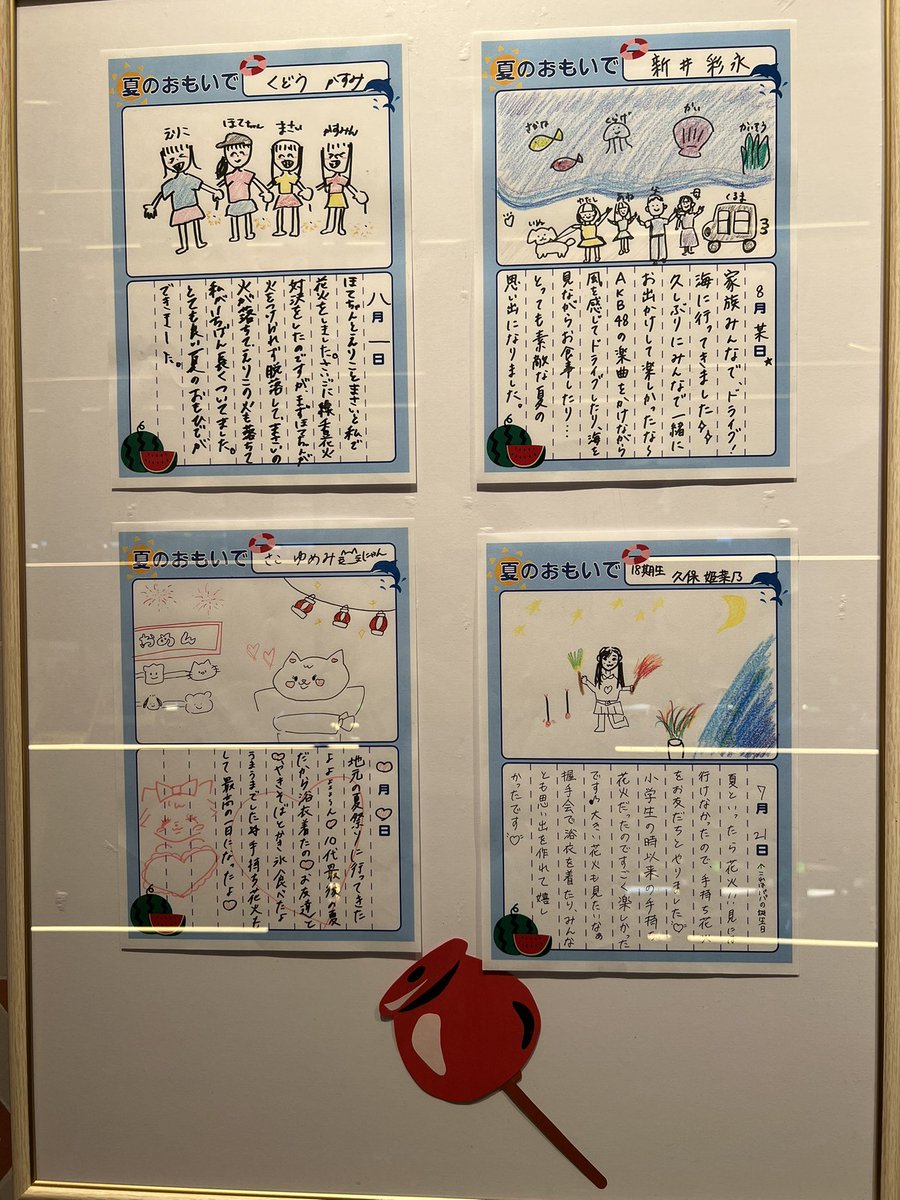 夏のおもいで
くどう かすみ
えりこ
ほてちゃん
まさい
かすみん
八月一日
ほてちんとえりことまさいと私で
花火をしました。さいごに線香花火
対決をしたのですが、まずほてちんが
火をつけれず脱落して、まさいの
火が落ちてえりこの火も落ちて
私がいちばん長くついてました。
とても良い夏のおもひでが
できました。
夏のおもいで
新井 彩永
さかな
くらげ
かい
かいそう
いぬ
わたし
あや
父
母
くるま
8月某日★
家族みんなで、ドライブ!
海に行ってきました
久しぶりにみんなで一緒に
お出かけして楽しかったな〜
AKB48の楽曲をかけながら
風を感じてドライブしたり、海を
見ながらお食事したり…
とっても素敵な夏の
思い出になりました。
夏のおもいで
さこ ゆめみ にゃん
おめん
♡月♡日
地元の夏祭りに行ってきた
よよよよん♡10代最後の夏
だから浴衣着たの♡お友達と
♡やきそばとかき氷食べたよ
うまうまでした 手持ち花火も
して最高の一日になったよ♡
夏のおもいで
18期生 久保 姫菜乃
7月21日
へこれはパパの誕生日
夏といったら花火!!見には
行けなかったので、手持ち花火
をお友だちとやりました♡
小学生の時以来の手持ち
花火だったのですごく楽しかった
です 大きい花火も見たいなぁ
握手会で浴衣を着たり、みんな
とも思い出を作れて嬉し
かったです♡